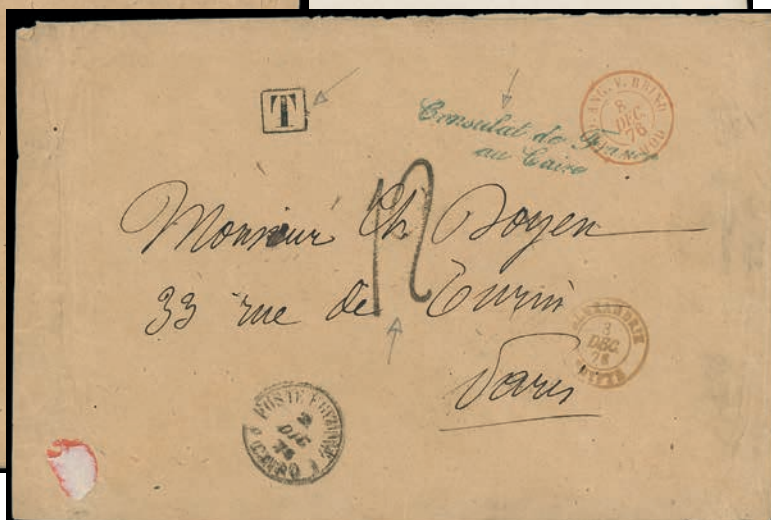 T
Consulat de France
au Caire
POSS. ANG. V. BRIND
8
DEC.
76
MOD
12
Monsieur Ch Doyen
33 rue de Turin
Paris
ALEXANDRIE
8
DEC.
76
EGYPTE
POSTE EGIZIANE
DIC
76
CAIRO